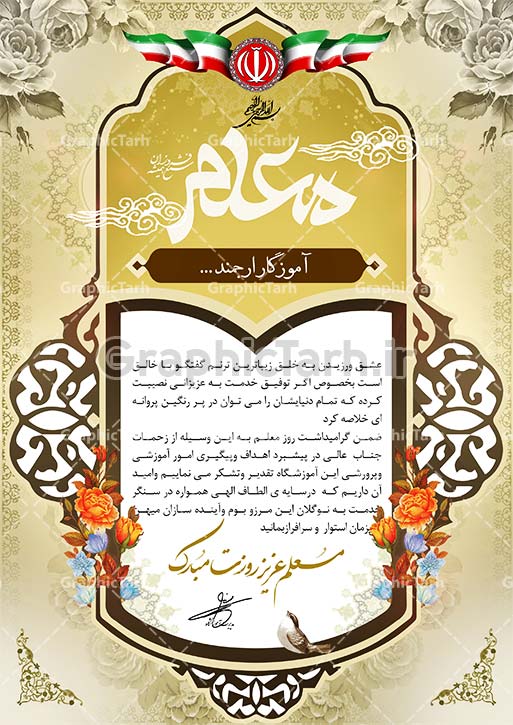 بسم الله الرحمن الرحیم
معلم
آموزگار ارجمند ...
عشق ورزیدن به خلق زیباترین ترنم گفتگو با خالق
است بخصوص اگر توفیق خدمت به عزیزانی نصیبت
کرده که تمام دنیایشان را می توان در پر رنگین پروانه
ای خلاصه کرد
ضمن گرامیداشت روز معلم به این وسیله از زحمات
جناب عالی در پیشبرد اهداف وپیگیری امور آموزشی
وپرورشی این آموزشگاه تقدیر وتشکر می نماییم وامید
آن داریم که درسایه ی الطاف الهی همواره در سنگر
خدمت به نوگلان این مرزو بوم وآینده سازان میهن
عزیزمان استوار و سرافرازبمانید
معلم عزیز روزت مبارک
GraphicTarh.ir
GraphicTarh